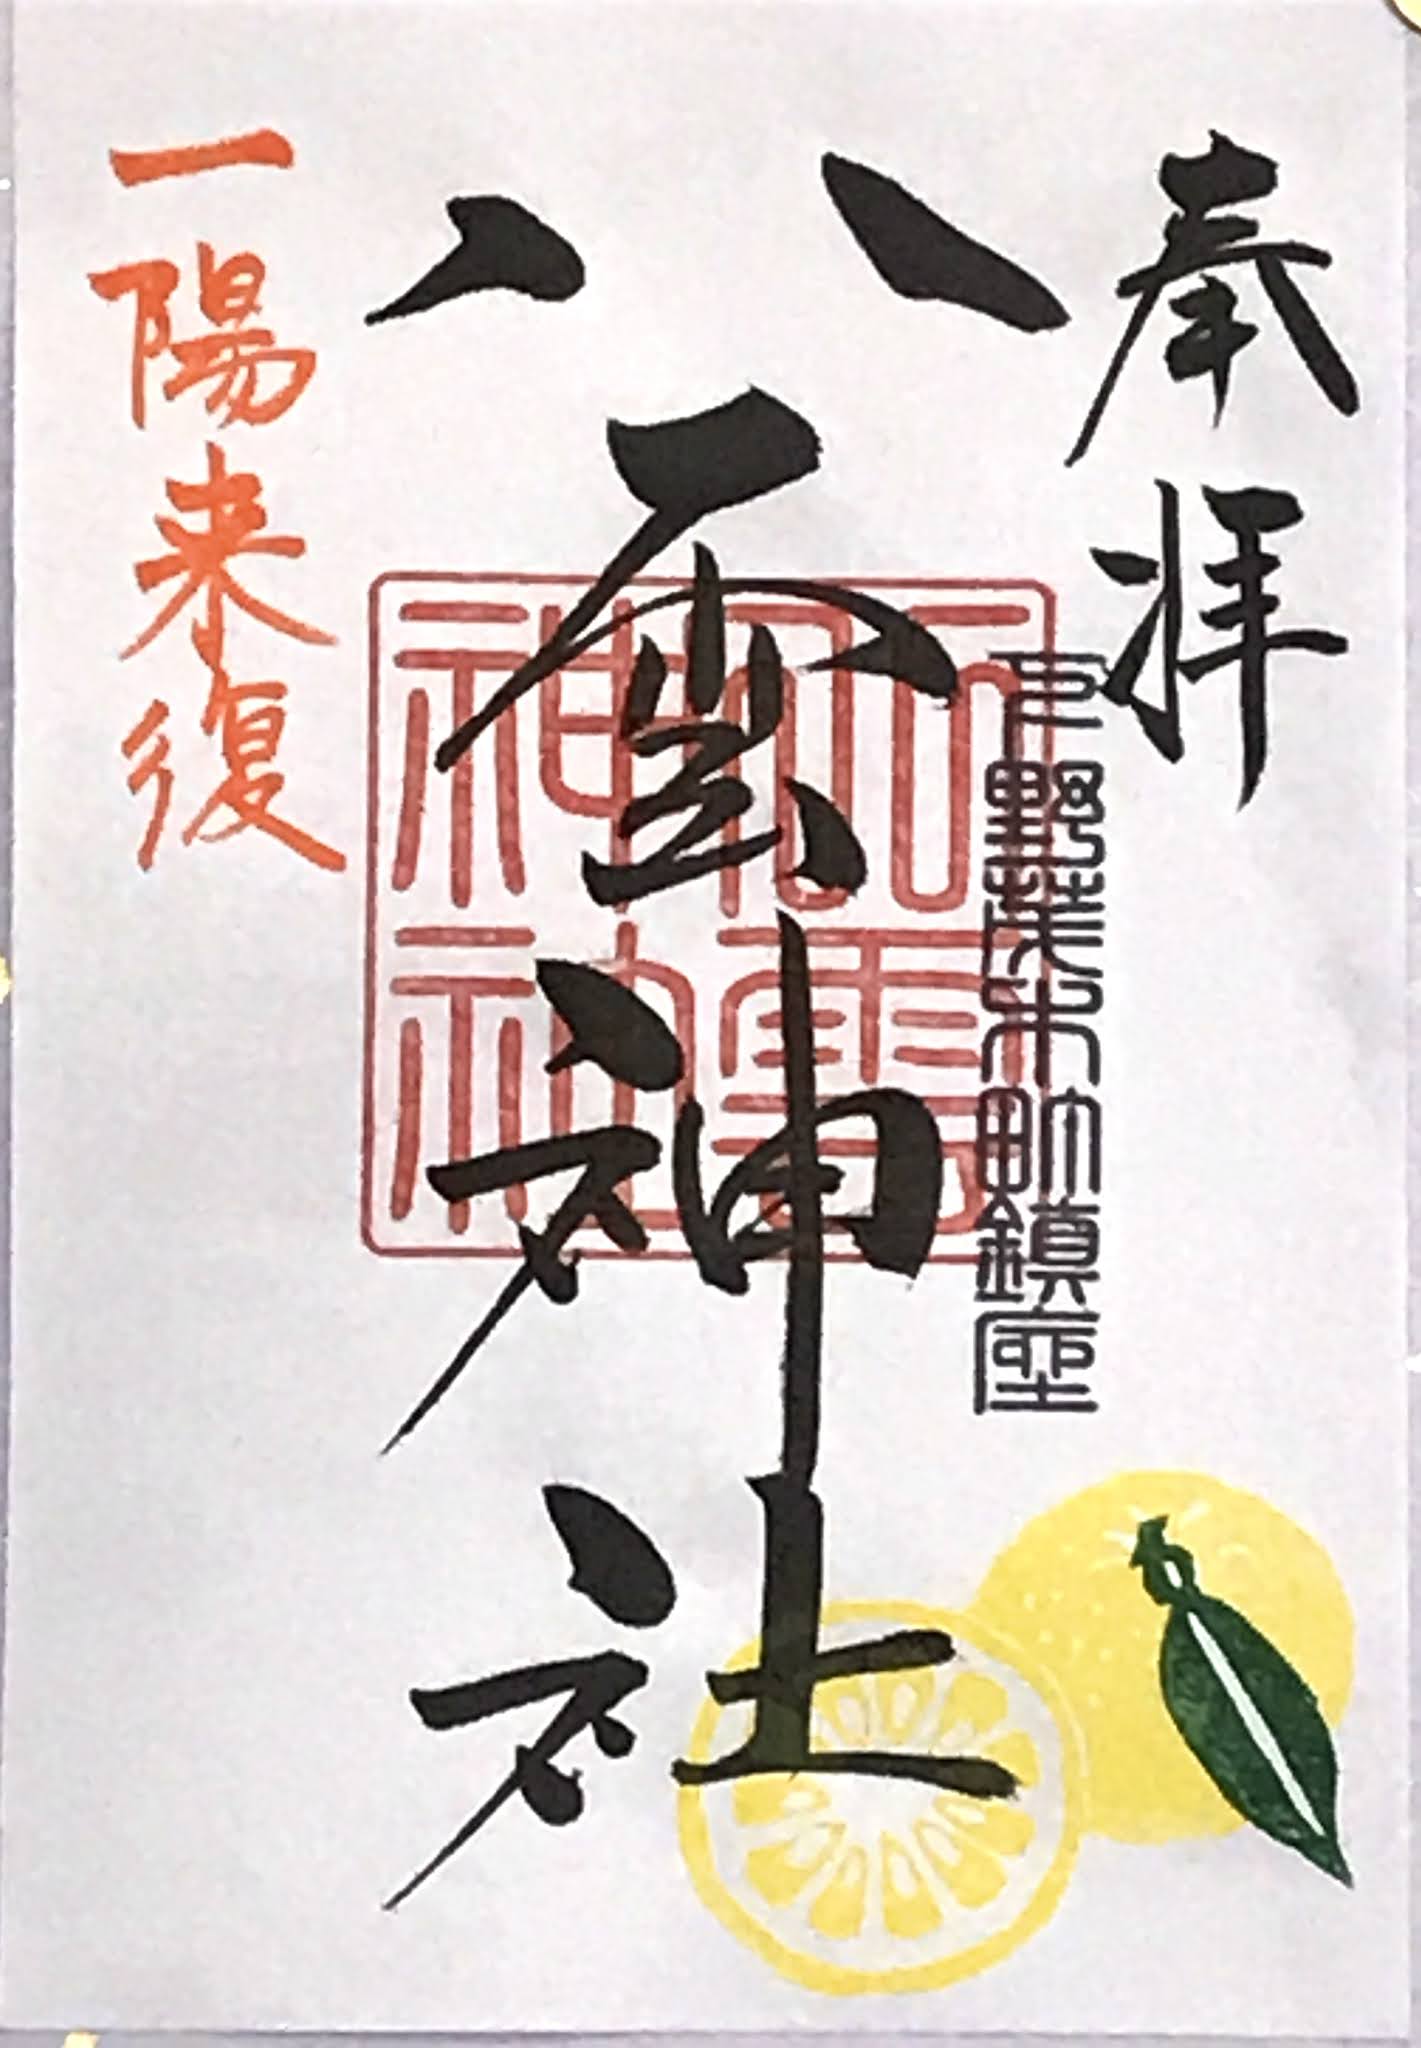 奉拝
下野茂木町鎮座
八雲神社
八雲神社
一陽来復